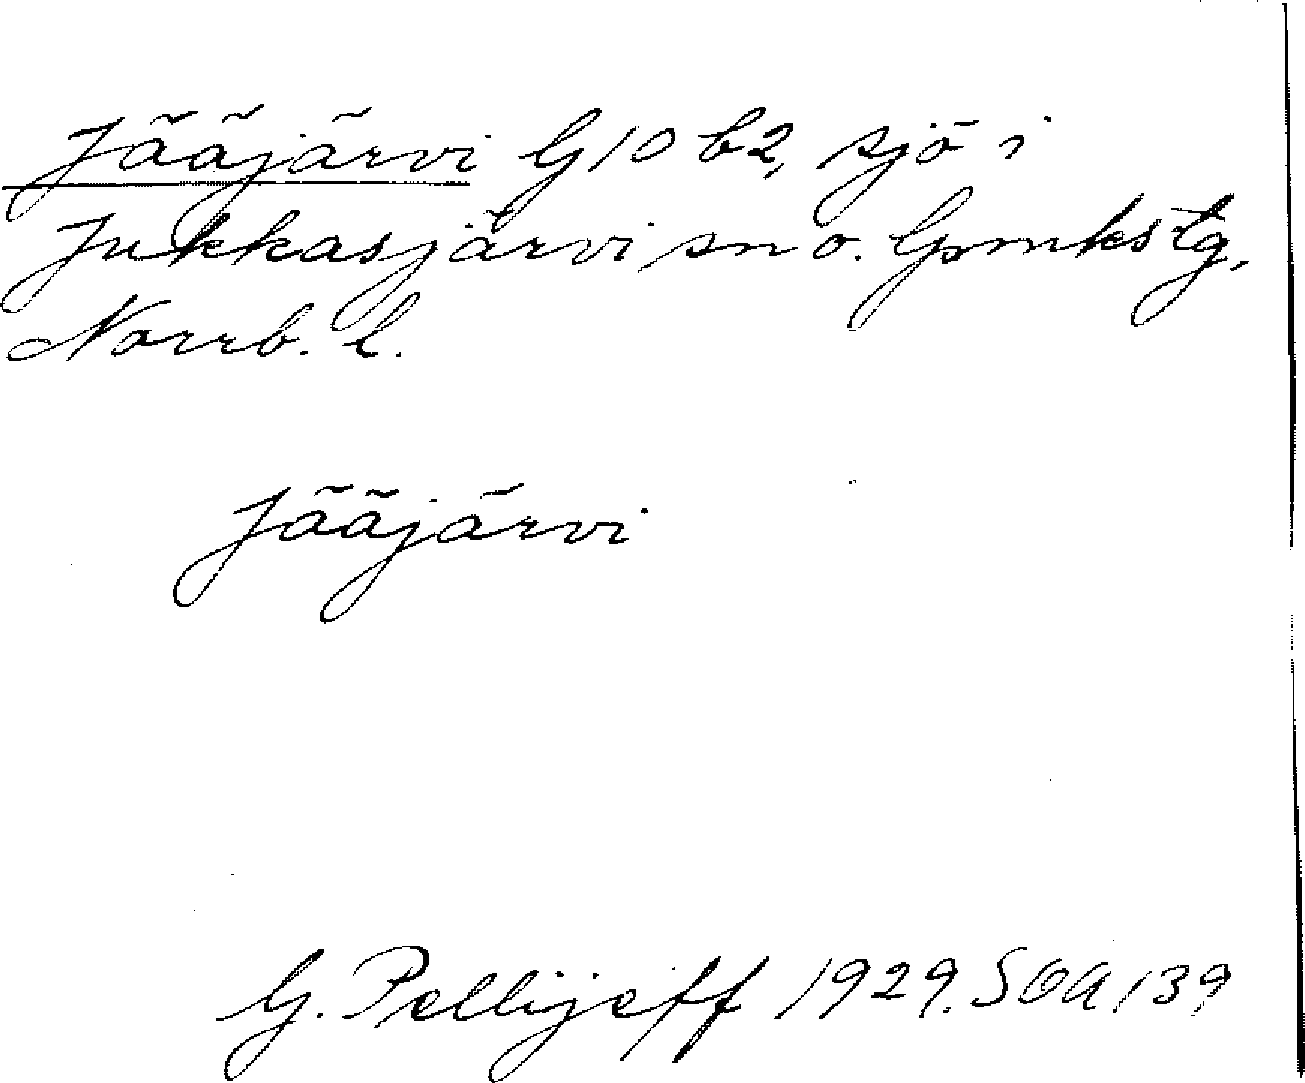 Jääjärvi G 10 b2, sjö i
Jukkasjärvi sn o. Gvmkstg,
Norrb. l.
Jääjärvi
G. Pellijeff 1929. SOA 139